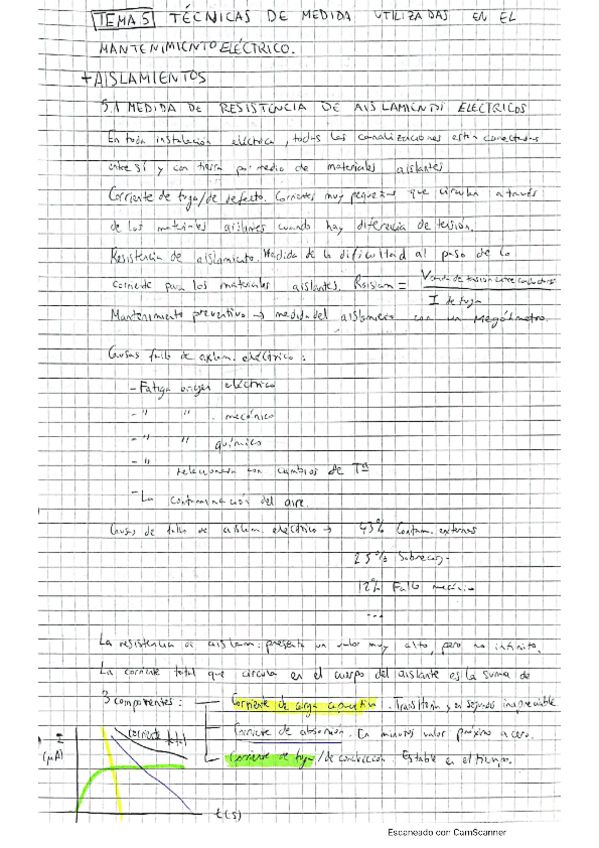 TEMA 5 TÉCNICAS DE MEDIDA UTILIZADAS EN EL
MANTENIMIENTO ELÉCTRICO.
+AISLAMIENTOS
5.1 MEDIDA DE RESISTENCIA DE AISLAMIENTO ELÉCTRICOS
En toda instalación eléctrica, todas las canalizaciones están conectadas
entre sí y con tierra por medio de materiales aislantes.
Corriente de fuga/de defecto. Corrientes muy pequeñas que circulan a través
de los materiales aislantes cuando hay diferencia de tensión.
Resistencia de aislamiento. Medida de la dificultad al paso de la
corriente para los materiales aislantes. Raislam =
I de fuga
Mantenimiento preventivo → medida del aislamiento con un Megóhmetro.
Causas fallo de aislam. eléctrico:
- Fatiga origen eléctrico
- " " mecánico
- " " químico
- " relacionada con cambios de Tª
- La contaminación del aire.
Causas de fallo de aislam. eléctrico → 43% Contam. externas
25% Sobrecarg.
12% Fallo mecánico
...
La resistencia de aislam. presenta un valor muy alto, pero no infinito.
La corriente total que circula en el cuerpo del aislante es la suma de
3 componentes: Corriente de carga capacitiva. Transitoria y en segundos inapreciable
Corriente de absorción. En minutos valor próximo a cero.
Corriente de fuga/de conducción. Estable en el tiempo.
I
(μA)
corriente total
t(s)
Escaneado con CamScanner